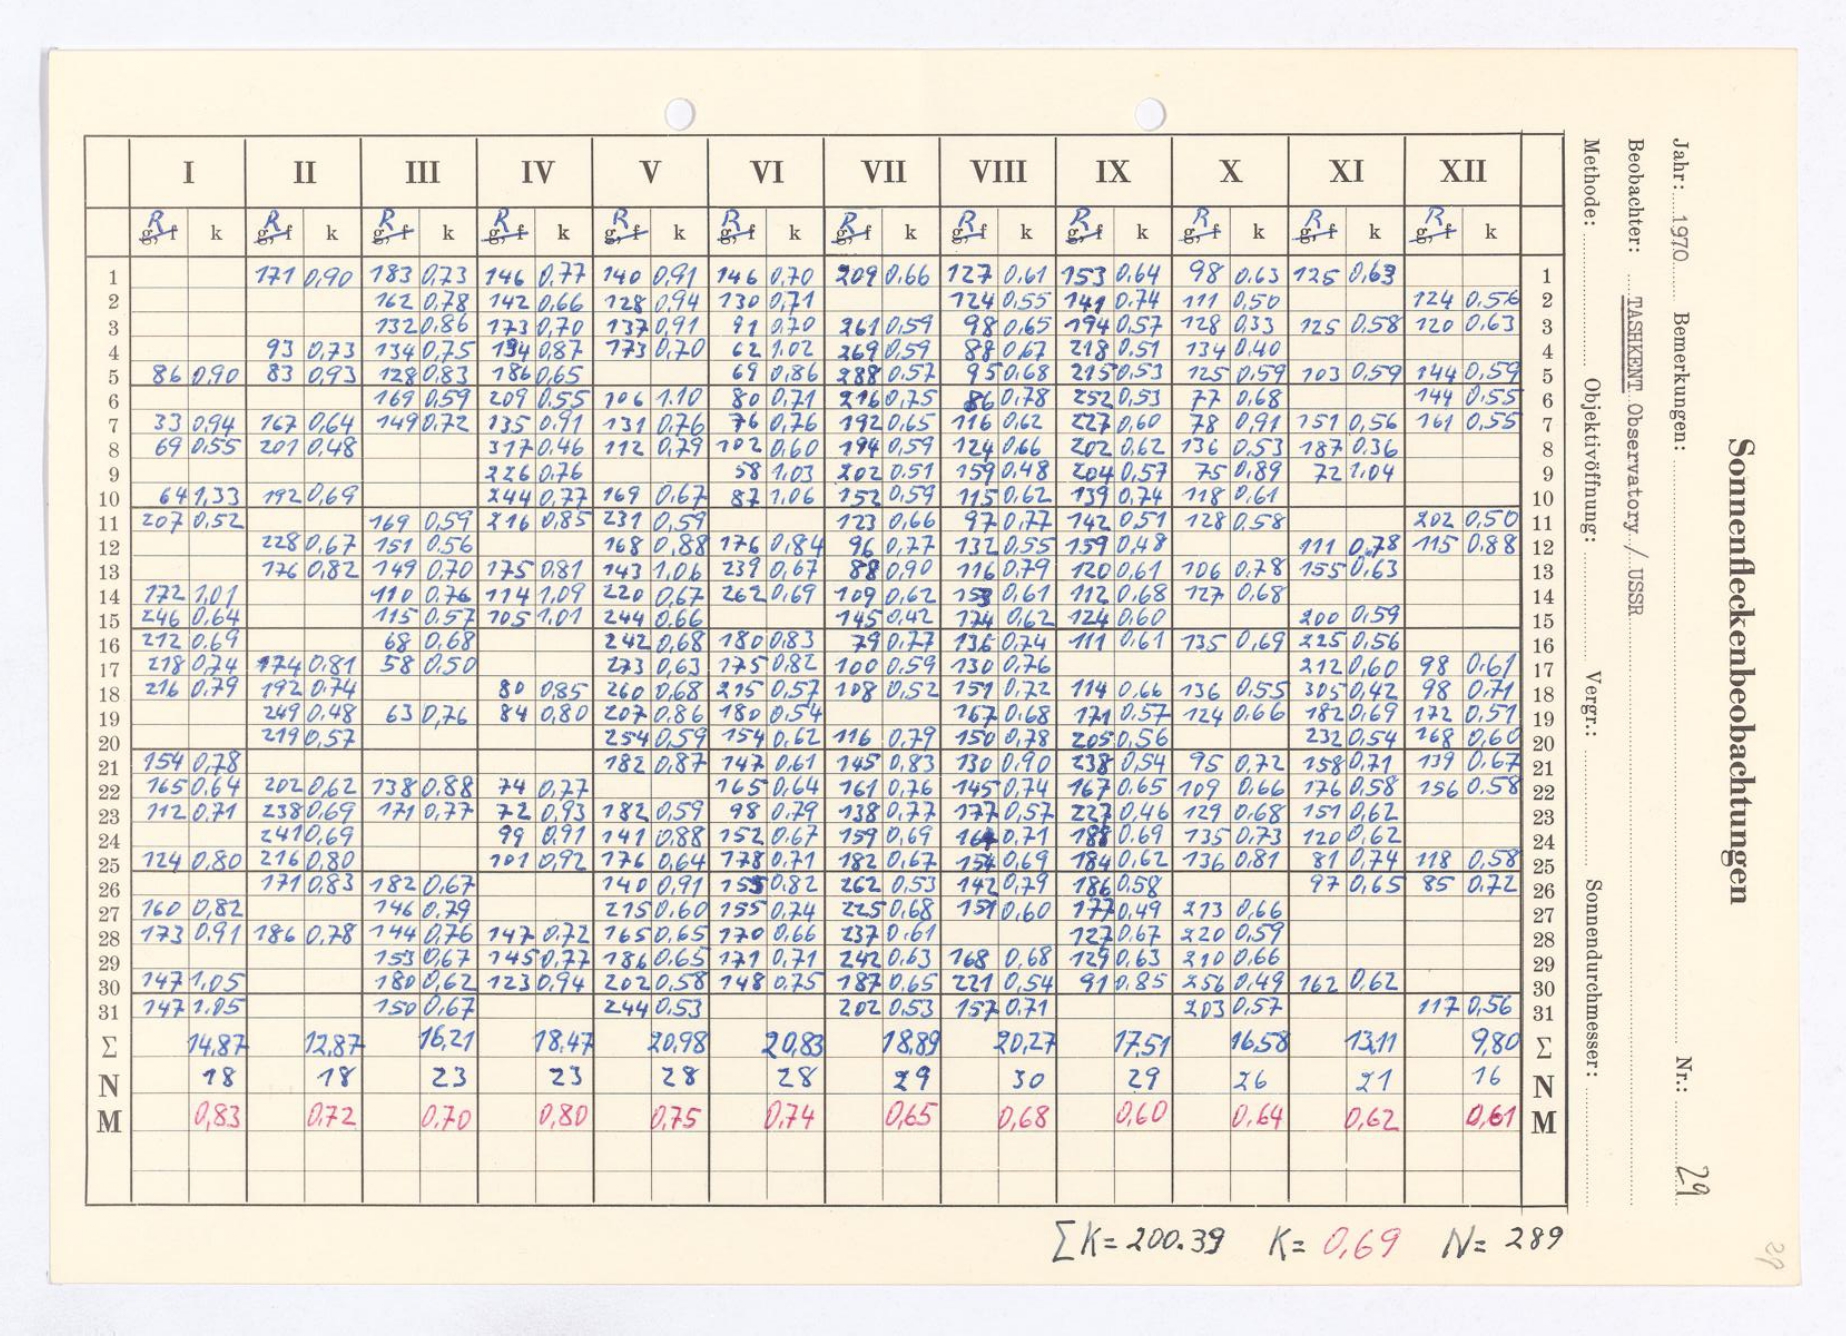 I II III IV V VI VII VIII IX X XI XII
R R R R R R R R R R R R
g, f k g, f k g, f k g, f k g, f k g, f k g, f k g, f k g, f k g, f k g, f k g, f k
1 171 0,90 183 0,73 146 0,77 140 0,91 146 0,70 209 0,66 127 0,61 153 0,64 98 0,63 125 0,63 1
2 162 0,78 142 0,66 128 0,94 130 0,71 124 0,55 141 0,74 111 0,50 124 0,56 2
3 132 0,86 173 0,70 137 0,91 91 0,70 261 0,59 98 0,65 194 0,57 128 0,33 125 0,58 120 0,63 3
4 93 0,73 134 0,75 194 0,87 173 0,70 62 1,02 269 0,59 88 0,67 218 0,51 134 0,40 4
5 86 0,90 83 0,93 128 0,83 186 0,65 69 0,86 288 0,57 95 0,68 215 0,53 125 0,59 103 0,59 144 0,59 5
6 169 0,59 209 0,55 106 1,10 80 0,71 216 0,75 86 0,78 252 0,53 77 0,68 144 0,55 6
7 33 0,94 167 0,64 149 0,72 135 0,91 131 0,76 76 0,76 192 0,65 116 0,62 227 0,60 78 0,91 151 0,56 161 0,55 7
8 69 0,55 201 0,48 317 0,46 112 0,79 102 0,60 194 0,59 124 0,66 202 0,62 136 0,53 187 0,36 8
9 226 0,76 58 1,03 202 0,51 159 0,48 204 0,57 75 0,89 72 1,04 9
10 64 1,33 192 0,69 244 0,77 169 0,67 87 1,06 152 0,59 115 0,62 139 0,74 118 0,61 10
11 207 0,52 169 0,59 216 0,85 231 0,59 123 0,66 97 0,77 142 0,51 128 0,58 202 0,50 11
12 228 0,67 151 0,56 168 0,88 176 0,84 96 0,77 132 0,55 159 0,48 111 0,78 115 0,88 12
13 176 0,82 149 0,70 175 0,81 143 1,06 239 0,67 88 0,90 116 0,79 120 0,61 106 0,78 155 0,63 13
14 172 1,01 110 0,76 114 1,09 220 0,67 262 0,69 109 0,62 153 0,61 112 0,68 127 0,68 14
15 246 0,64 115 0,57 105 1,01 244 0,66 145 0,42 174 0,62 124 0,60 200 0,59 15
16 212 0,69 68 0,68 242 0,68 180 0,83 79 0,77 136 0,74 111 0,61 135 0,69 225 0,56 16
17 218 0,74 174 0,81 58 0,50 273 0,63 175 0,82 100 0,59 130 0,76 212 0,60 98 0,61 17
18 216 0,79 192 0,74 80 0,85 260 0,68 215 0,57 108 0,52 151 0,72 114 0,66 136 0,55 305 0,42 98 0,71 18
19 249 0,48 63 0,76 84 0,80 207 0,86 180 0,54 167 0,68 171 0,57 124 0,66 182 0,69 172 0,51 19
20 219 0,57 254 0,59 154 0,62 116 0,79 150 0,78 205 0,56 232 0,54 168 0,60 20
21 154 0,78 182 0,87 147 0,61 145 0,83 130 0,90 238 0,54 95 0,72 158 0,71 139 0,67 21
22 165 0,64 202 0,62 138 0,88 74 0,77 165 0,64 161 0,76 145 0,74 167 0,65 109 0,66 176 0,58 156 0,58 22
23 112 0,71 238 0,69 171 0,77 72 0,93 182 0,59 98 0,79 138 0,77 177 0,57 227 0,46 129 0,68 151 0,62 23
24 241 0,69 99 0,91 141 0,88 152 0,67 159 0,69 0,71 188 0,69 135 0,73 120 0,62 24
25 124 0,80 216 0,80 101 0,92 176 0,64 178 0,71 182 0,67 154 0,69 184 0,62 136 0,81 81 0,74 118 0,58 25
26 171 0,83 182 0,67 140 0,91 155 0,82 262 0,53 142 0,79 186 0,58 97 0,65 85 0,72 26
27 160 0,82 146 0,79 215 0,60 155 0,74 225 0,68 151 0,60 177 0,49 213 0,66 27
28 173 0,91 186 0,78 144 0,76 147 0,72 165 0,65 170 0,66 237 0,61 127 0,67 220 0,59 28
29 153 0,67 145 0,77 186 0,65 171 0,71 242 0,63 168 0,68 129 0,63 210 0,66 29
30 147 1,05 180 0,62 123 0,94 202 0,58 148 0,75 187 0,65 221 0,54 91 0,85 256 0,49 162 0,62 30
31 147 1,05 150 0,67 244 0,53 202 0,53 157 0,71 203 0,57 117 0,56 31
Σ 14,87 12,87 16,21 18,47 20,98 20,83 18,89 20,27 17,51 16,58 13,11 9,80 Σ
N 18 18 23 23 28 28 29 30 29 26 21 16 N
M 0,83 0,72 0,70 0,80 0,75 0,74 0,65 0,68 0,60 0,64 0,62 0,61 M
ΣK = 200.39 K = 0,69 N = 289
Sonnenfleckenbeobachtungen
Jahr: 1970 Bemerkungen: Nr.: 29
Beobachter: TASHKENT Observatory / USSR
Methode: Objektivöffnung: Vergr.: Sonnendurchmesser:
29